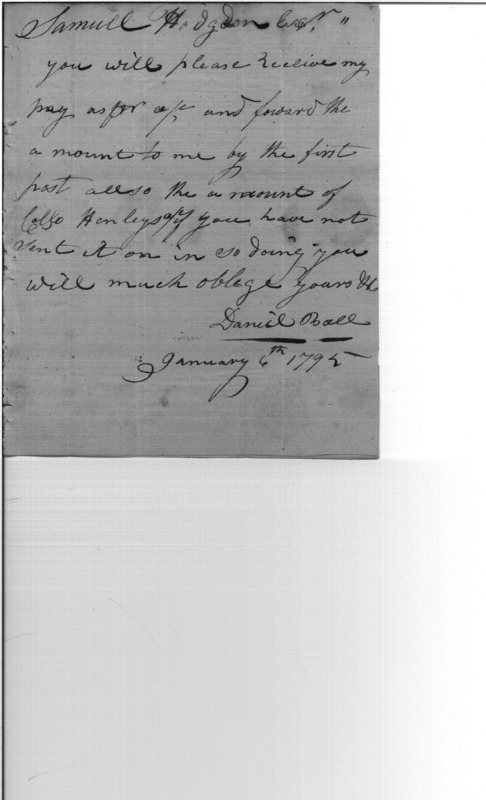 Samuell Hodgdon Esqr "
you will please Receive my
pay as per a/c and forward the
a mount to me by the first
post allso the a mount of
Collo Henleys if you have not
sent it on in so doing you
will much oblege yours &c
Daniel Ball
January 6th 1795